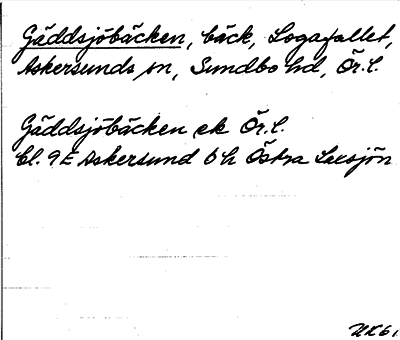 Gäddsjöbäcken, bäck, Logafallet,
Askersunds sn, Sundbo hd, Ör.l.
Gäddsjöbäcken ek Ör.l.
bl. 9E Askersund 6 h Östra Laxsjön
UK61